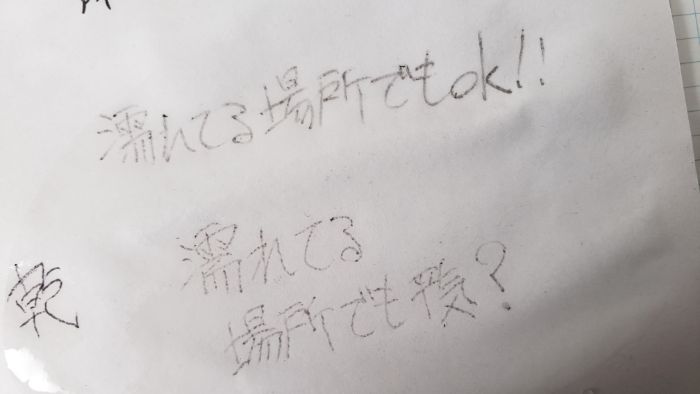 濡れてる場所でもok!!
濡れてる
場所でも平気?
乾